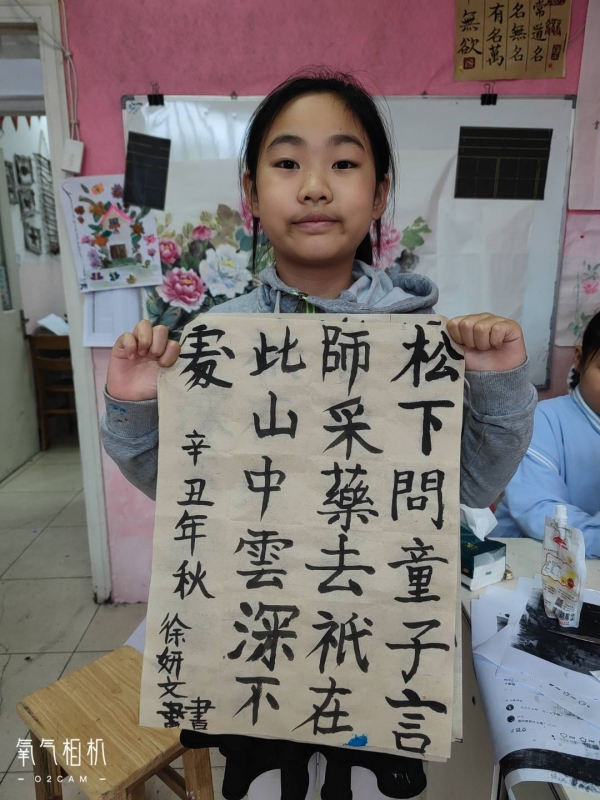 常道名
名無名
有名萬
無欲
松下問童子言
師采藥去祇在
此山中雲深不
處
辛丑年秋
徐妍文書
氧气相机
— O2CAM —